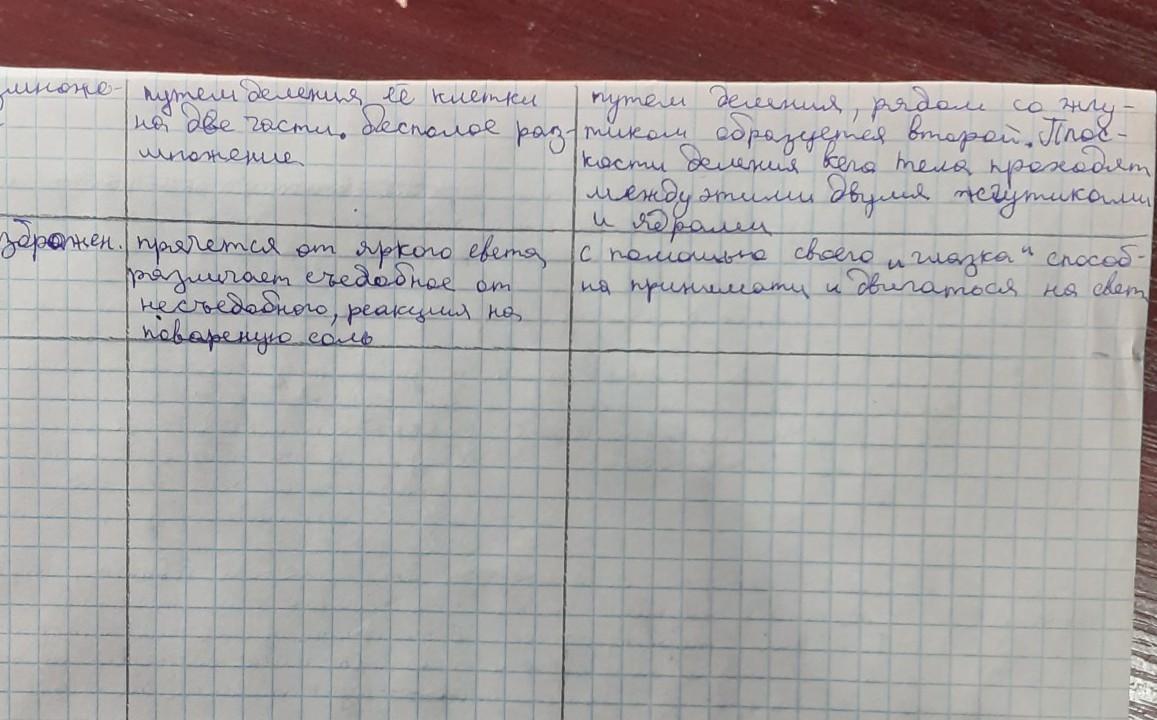 множе-
путем деления её клетки
на две части. Бесполое раз-
множение
путем деления, рядом со жгу-
тиком образуется второй. Плос-
кости деления всего тела проходят
между этими двумя жгутиками
и ядрами
здражен.
прячется от яркого света,
различает съедобное от
несъедобного, реакция на
повареную соль
с помощью своего "глазка" способ-
на принимать и двигаться на свет